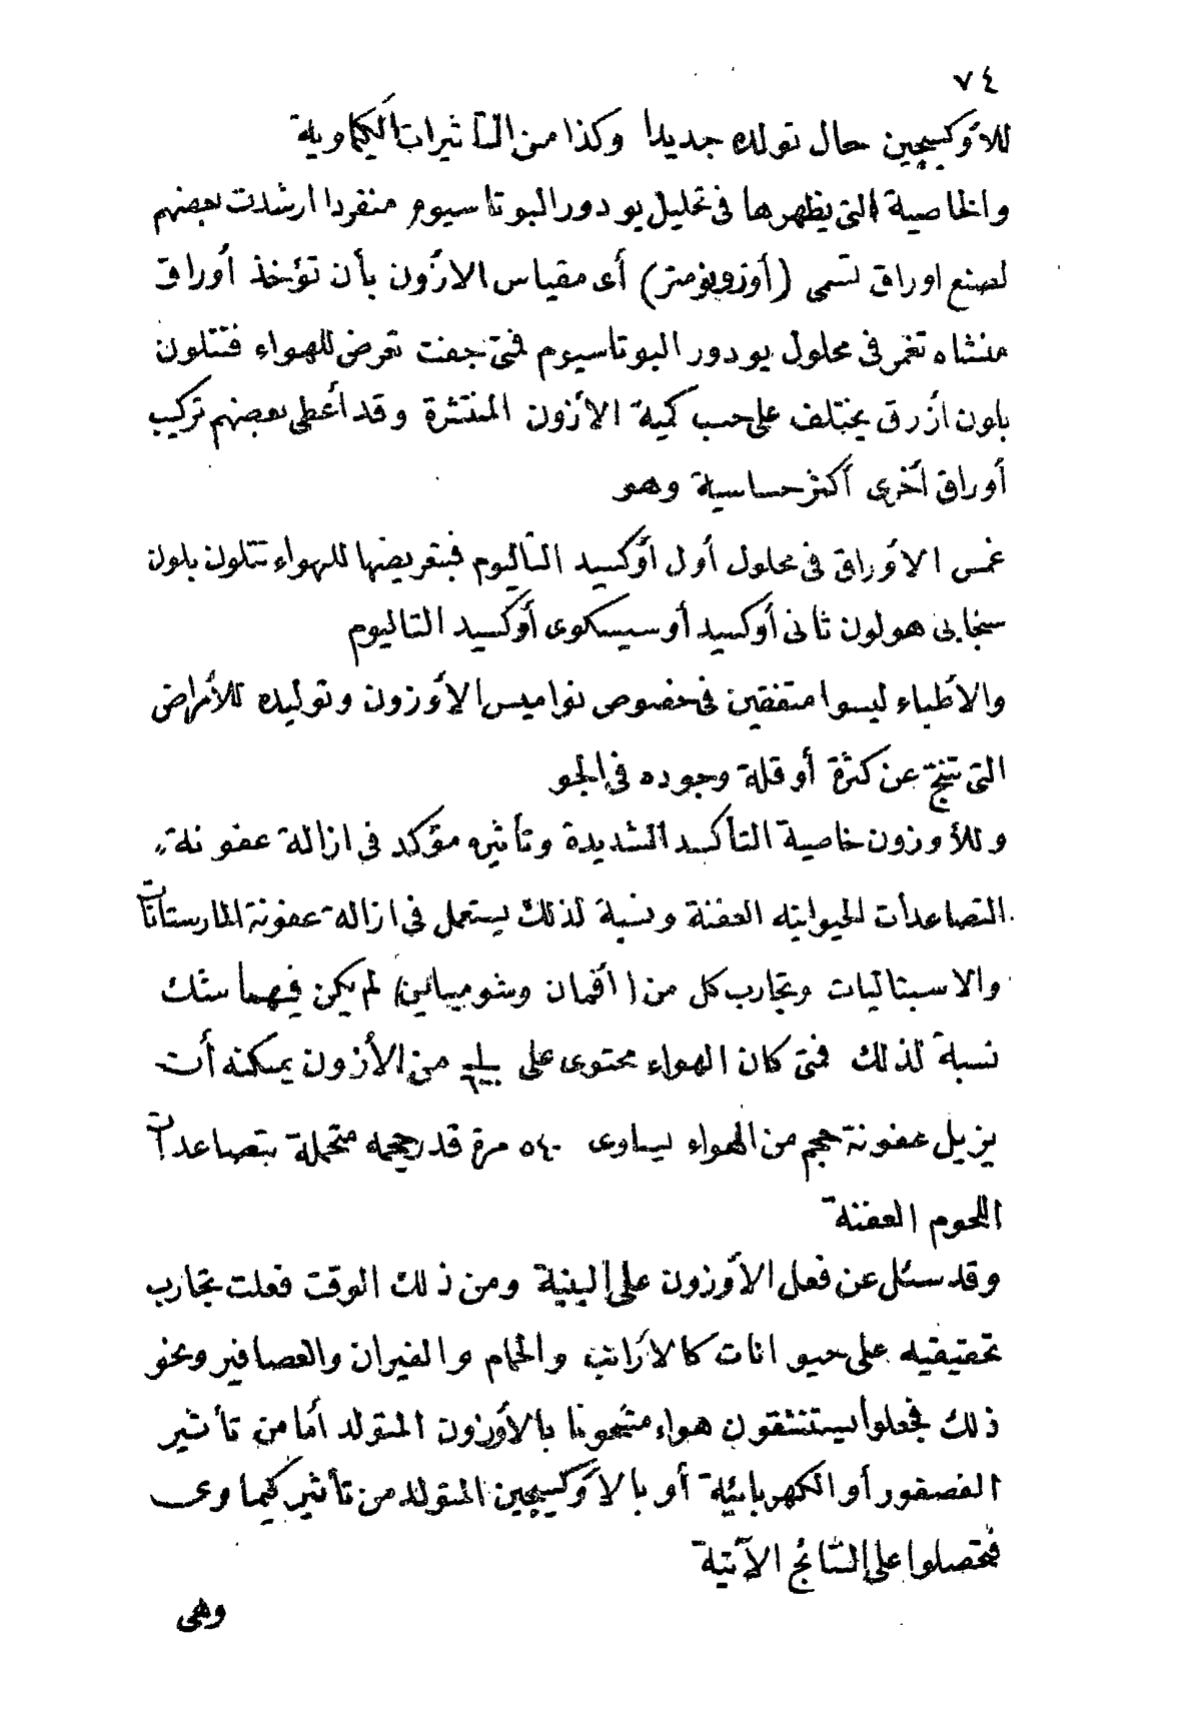 ٧٤
للأوكسيجين حال تولده جديدا وكذا من التأثيرات الكيماوية
والخاصية التى يظهرها فى تحليل يودور البوتاسيوم منفردا ارشدت بعضهم
لصنع اوراق تسمى (أوزونومتر) أى مقياس الازون بأن تؤخذ أوراق
منشاه تغمر فى محلول يودور البوتاسيوم فمتى جفت تعرض للهواء فتتلون
بلون ازرق يختلف على حسب كمية الأزون المنتثرة وقد أعطى بعضهم تركيب
أوراق أخرى أكثر حساسية وهو
غمس الاوراق فى محلول أول أوكسيد التاليوم فبتعريضها للهواء تتلون بلون
سنجابى هو لون ثانى أوكسيد أو سيسكوى أوكسيد التاليوم
والأطباء ليسوا متفقين فى خصوص نواميس الأوزون وتوليده للأمراض
التى تنتج عن كثرة أو قلة وجوده فى الجو
وللأوزون خاصية التأكسد الشديدة وتأثيره مؤكد فى ازالة عفونة
التصاعدات الحيوانيه العفنة ونسبة لذلك يستعمل فى ازالة عفونة المارستانات
والاسبتاليات وتجارب كل من (أقمان وشومبياين) لم يكن فيهما شك
نسبة لذلك فمتى كان الهواء محتوى على من الأزون يمكنه أن
يزيل عفونة حجم من الهواء يساوى ٥٤٠ مرة قدر حجمه متحملة بتصاعدات
اللحوم العفنة
وقد سئل عن فعل الأوزون على البنية ومن ذلك الوقت فعلت تجارب
تحقيقيه على حيوانات كالارانب والحمام والفيران والعصافير ونحو
ذلك فجعلوا يستنشقون هواء مشحونا بالأوزون المتولد أما من تأثير
الفصفور أو الكهربائية أو بالاوكسيجين المتولد من تأثير كيماوى
فتحصلوا على النتائج الآتية
وهى